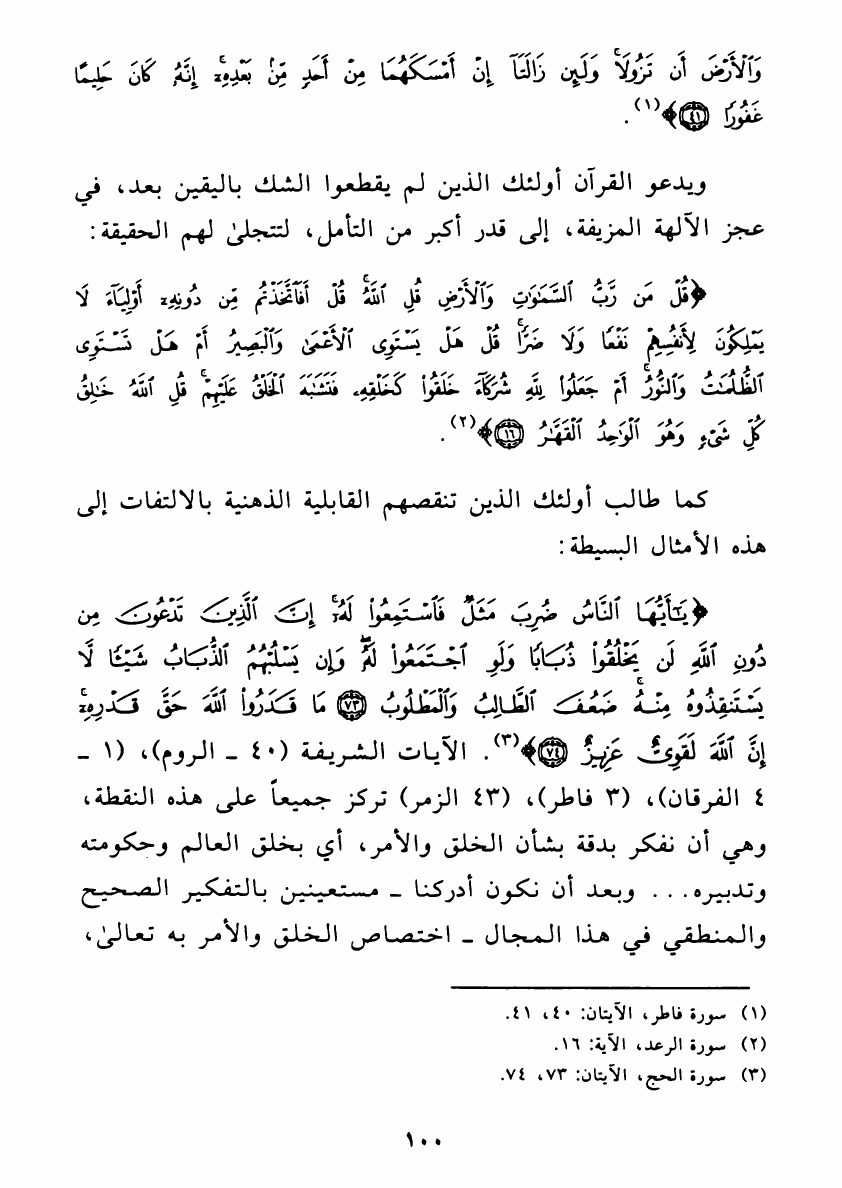 وَٱلْأَرْضَ أَن تَزُولَاۚ وَلَئِن زَالَتَآ إِنْ أَمْسَكَهُمَا مِنْ أَحَدٍ مِّنۢ بَعْدِهِۦٓۚ إِنَّهُۥ كَانَ حَلِيمًا
غَفُورًا ﴿٤١﴾﴾(١).
ويدعو القرآن أولئك الذين لم يقطعوا الشك باليقين بعد، في
عجز الآلهة المزيفة، إلى قدر أكبر من التأمل، لتتجلىٰ لهم الحقيقة:
﴿قُلْ مَن رَّبُّ ٱلسَّمَـٰوَٰتِ وَٱلْأَرْضِ قُلِ ٱللَّهُۚ قُلْ أَفَٱتَّخَذْتُم مِّن دُونِهِۦٓ أَوْلِيَآءَ لَا
يَمْلِكُونَ لِأَنفُسِهِمْ نَفْعًا وَلَا ضَرًّاۚ قُلْ هَلْ يَسْتَوِى ٱلْأَعْمَىٰ وَٱلْبَصِيرُ أَمْ هَلْ تَسْتَوِى
ٱلظُّلُمَـٰتُ وَٱلنُّورُۗ أَمْ جَعَلُوا۟ لِلَّهِ شُرَكَآءَ خَلَقُوا۟ كَخَلْقِهِۦ فَتَشَـٰبَهَ ٱلْخَلْقُ عَلَيْهِمْۚ قُلِ ٱللَّهُ خَـٰلِقُ
كُلِّ شَىْءٍ وَهُوَ ٱلْوَٰحِدُ ٱلْقَهَّـٰرُ ﴿١٦﴾﴾(٢).
كما طالب أولئك الذين تنقصهم القابلية الذهنية بالالتفات إلى
هذه الأمثال البسيطة:
﴿يَـٰٓأَيُّهَا ٱلنَّاسُ ضُرِبَ مَثَلٌ فَٱسْتَمِعُوا۟ لَهُۥٓۚ إِنَّ ٱلَّذِينَ تَدْعُونَ مِن
دُونِ ٱللَّهِ لَن يَخْلُقُوا۟ ذُبَابًا وَلَوِ ٱجْتَمَعُوا۟ لَهُۥۖ وَإِن يَسْلُبْهُمُ ٱلذُّبَابُ شَيْـًٔا لَّا
يَسْتَنقِذُوهُ مِنْهُۚ ضَعُفَ ٱلطَّالِبُ وَٱلْمَطْلُوبُ ﴿٧٣﴾ مَا قَدَرُوا۟ ٱللَّهَ حَقَّ قَدْرِهِۦٓۚ
إِنَّ ٱللَّهَ لَقَوِىٌّ عَزِيزٌ ﴿٧٤﴾﴾(٣). الآيات الشريفة (٤٠ ـ الروم)، (١ ـ
٤ الفرقان)، (٣ فاطر)، (٤٣ الزمر) تركز جميعاً على هذه النقطة،
وهي أن نفكر بدقة بشأن الخلق والأمر، أي بخلق العالم وحكومته
وتدبيره... وبعد أن نكون أدركنا ـ مستعينين بالتفكير الصحيح
والمنطقي في هذا المجال ـ اختصاص الخلق والأمر به تعالىٰ،
(١) سورة فاطر، الآيتان: ٤٠، ٤١.
(٢) سورة الرعد، الآية: ١٦.
(٣) سورة الحج، الآيتان: ٧٣، ٧٤.
١٠٠